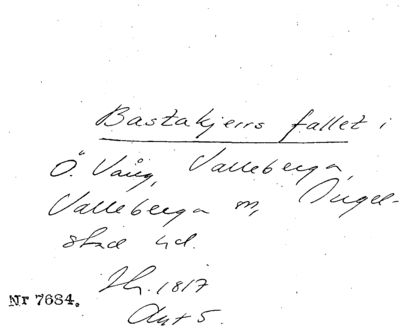 Bastakjerrs fallet i
Ö. Vång, Valleberga,
Valleberga sn, Ingel-
stad hd.
Sk. 1817
Akt 5.
Nr 7684.